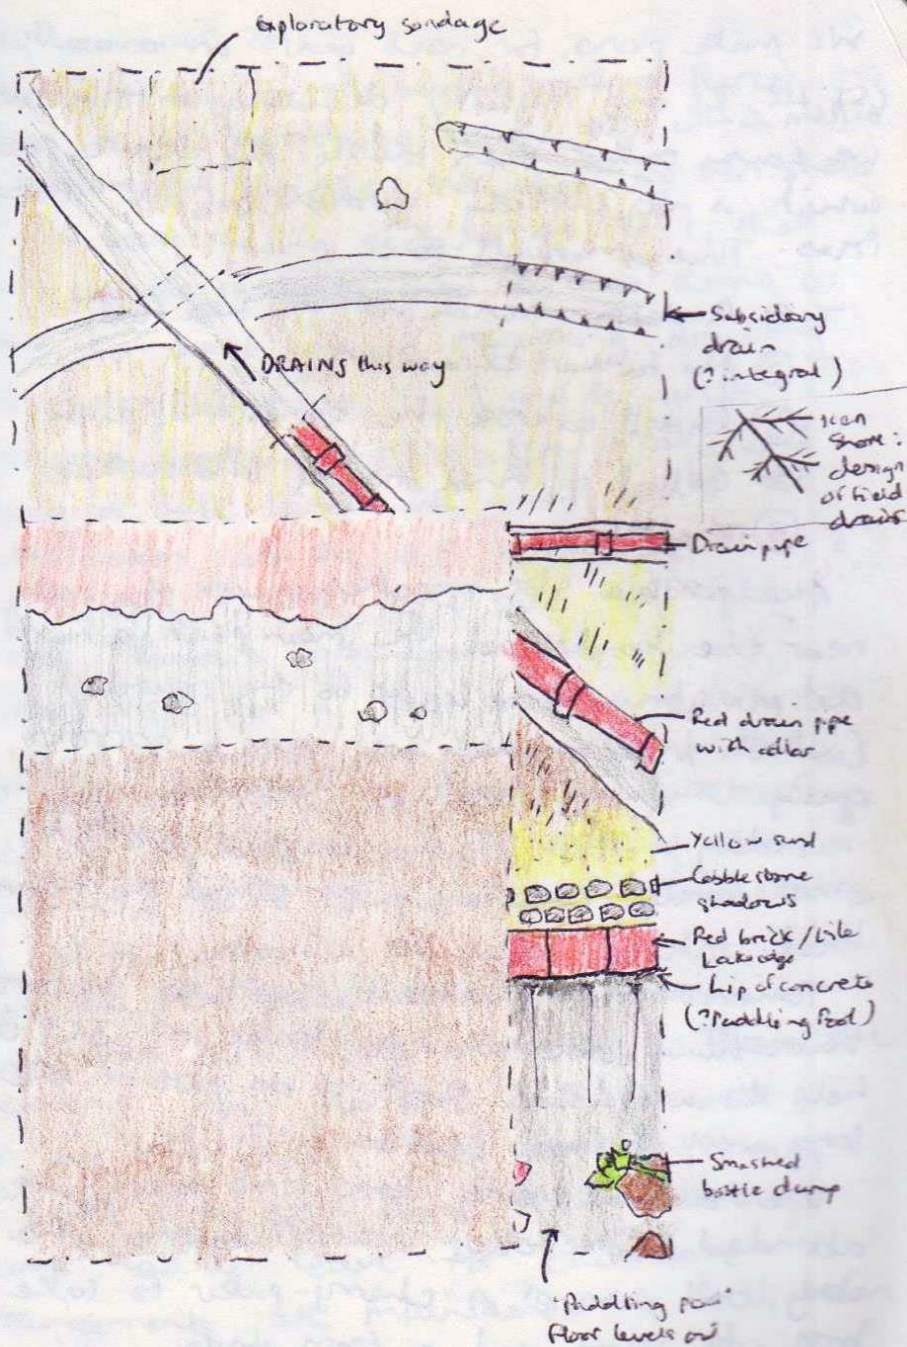 Exploratory sondage
Subsidiary
drain
(? integral)
DRAINS this way
Icon
Shore:
design
of field
drains
Drain pipe
Red drain pipe
with collar
Yellow sand
Cobblestone
shadows
Red brick/tile
Lake edge
Lip of concrete
(? Paddling Pool)
Smashed
bottle dump
'Paddling
floor levels